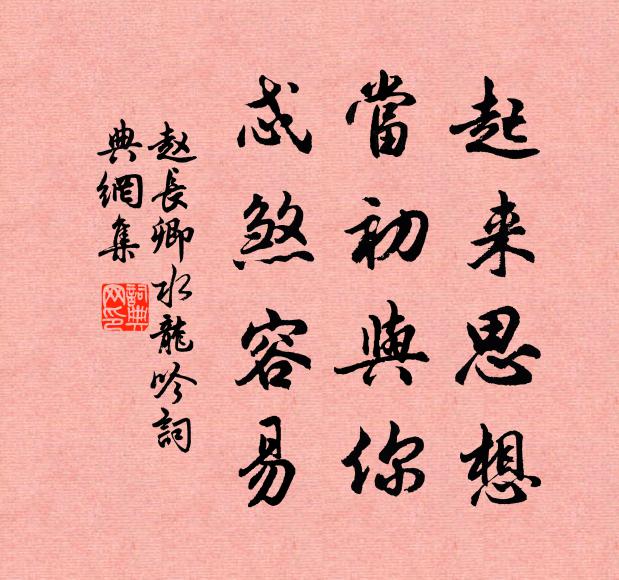 起来思想
當初與你
忒煞容易
赵長卿水龍吟詞
典網集
詞典
网印